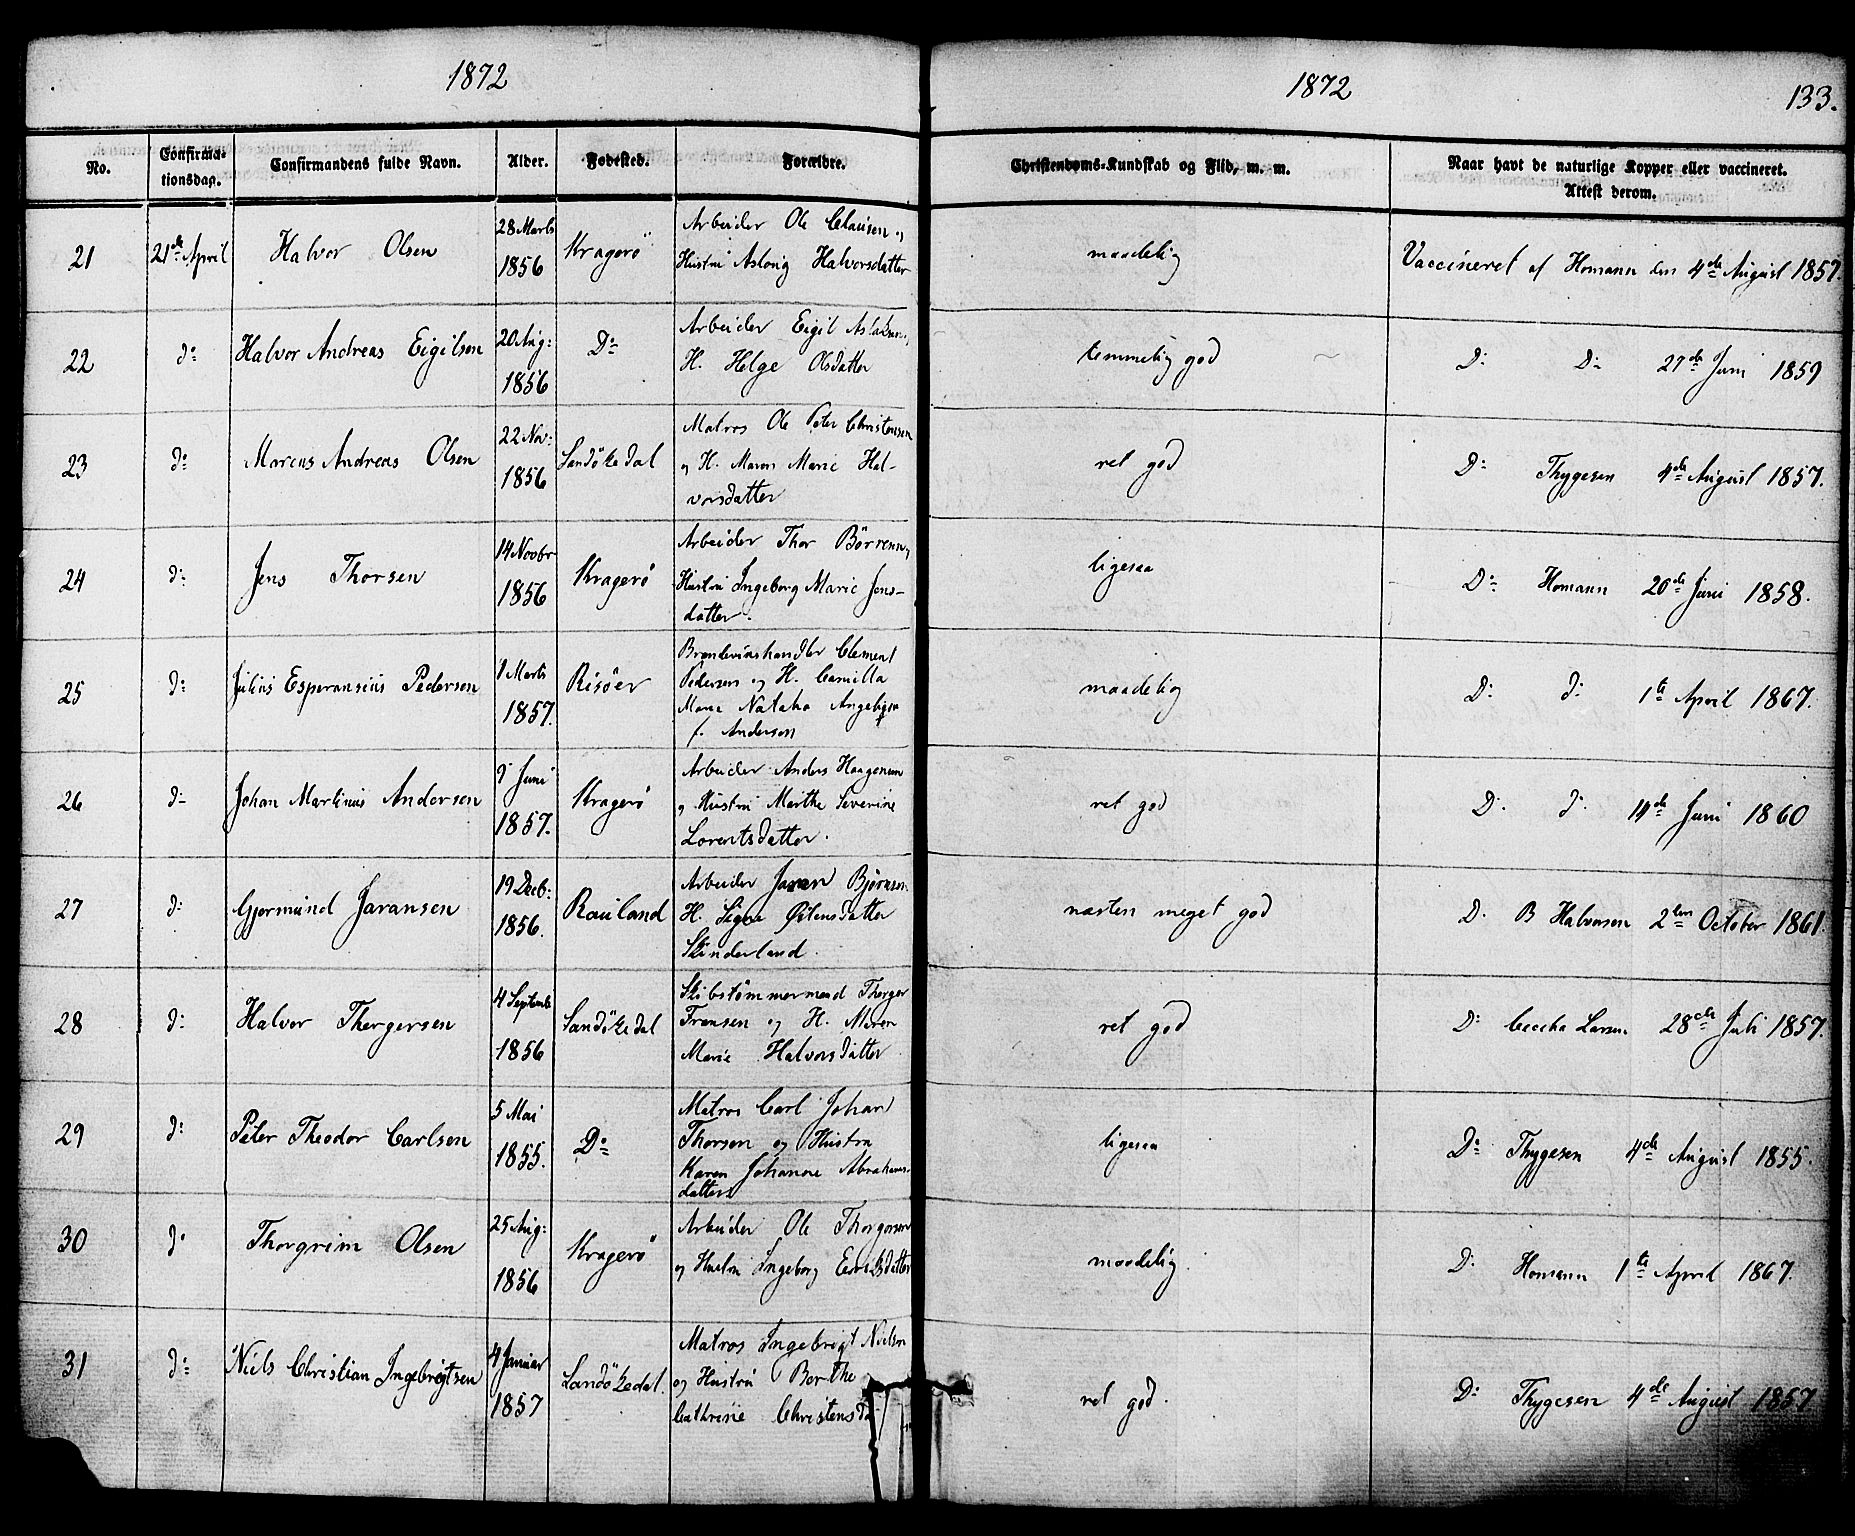 1872
1872
133.
No.
Confirma-
tionsdag.
Confirmandens fulde Navn.
Alder.
Fødested.
Forældre.
Christendoms-Kundskab og Flid, m. m.
Naar havt de naturlige Kopper eller vaccineret.
Attest derom.
21
21de April
Halvor Olsen
28 Marts
1856
Kragerö
Arbeider Ole Clausen og
Hustru Aslaug Halvorsdatter
maadelig
Vaccineret af Homann den 4de August 1857.
22
do
Halvor Andreas Eigilsen
20 Aug:
1856
Do
Arbeider Eigil Aslaksen
H. Helge Olsdatter
temmelig god
D: Do 27de Juni 1859
23
do
Marcus Andreas Olsen
22 Nov:
1856
Sandökedal
Matros Ole Peter Christensen
og H. Maren Marie Hal-
vorsdatter
ret god
D: Thygesen 4de August 1857.
24
d:
Jens Thorsen
14 Novbr
1856
Kragerö
Arbeider Thor Börresen
Hustru Ingeborg Marie Jens-
datter.
ligesaa
Do Homann 20de Juni 1858.
25
d:
Julius Esperansius Pedersen
1 Marts
1857.
Risöer
Brændevinshandler Clement
Pedersen og H. Camilla
Marie
f. Anderson
maadelig
D: d: 1te April 1867.
26
d:
Johan Martinus Andersen
Juni
1857.
Kragerö
Arbeider Anders Haagensen
og Hustru Marthe Severine
Lorentsdatter.
ret god
D. d: 14de Juni 1860
27
d:
Gjermund Jaransen
19 Decb:
1856.
Rauland
Arbeider Jaran Bjørnsen
H. Signe
Skinderland.
næsten meget god
D. B Halvorsen 2den October 1861.
28
d:
Halvor Thergersen
4 Septemb
1856
Sandökedal
Skibstømmermand Therger
Fransen og H. Maren
Marie Halvorsdatter
ret god
D: Cecilia Larsen 28de Juli 1857.
29
d:
Peter Theodor Carlsen
5 Mai
1855.
Do
Matros Carl Johan
Thorsen og Hustru
Karen Johanne Abrahams-
datter
ligesaa
Do Thygesen 4de August 1855.
30
do
Thorgrim Olsen
25 Aug:
1856
Kragerö
Arbeider Ole Thorgersen
og Hustru Ingeborg
maadelig.
D. Homann 1te April 1867.
31
d:
Niels Christian Ingebrigtsen
4 Januar
1857
Sandökedal.
Matros Ingebrigt Nielsen
og Hustru Berthe
Cathrine
ret god.
D: Thygesen 4de August 1857